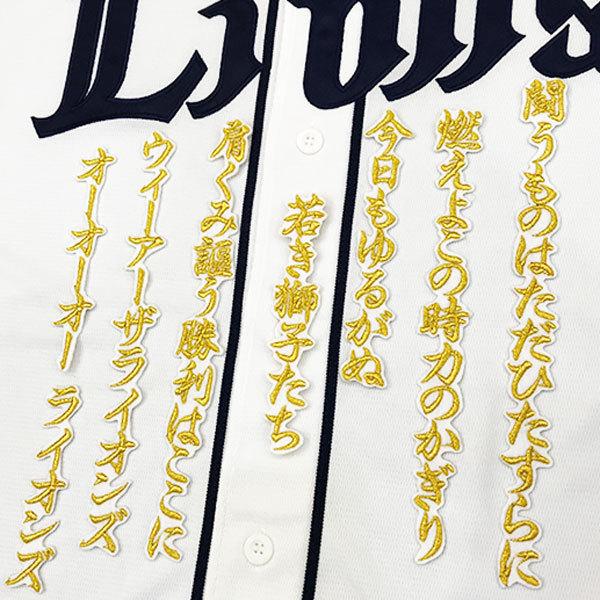 Lions
闘うものはただひたすらに
燃えよこの時力のかぎり
今日もゆるがぬ
若き獅子たち
肩くみ謳う勝利はここに
ウィーアーザライオンズ
オーオーオー ライオンズ